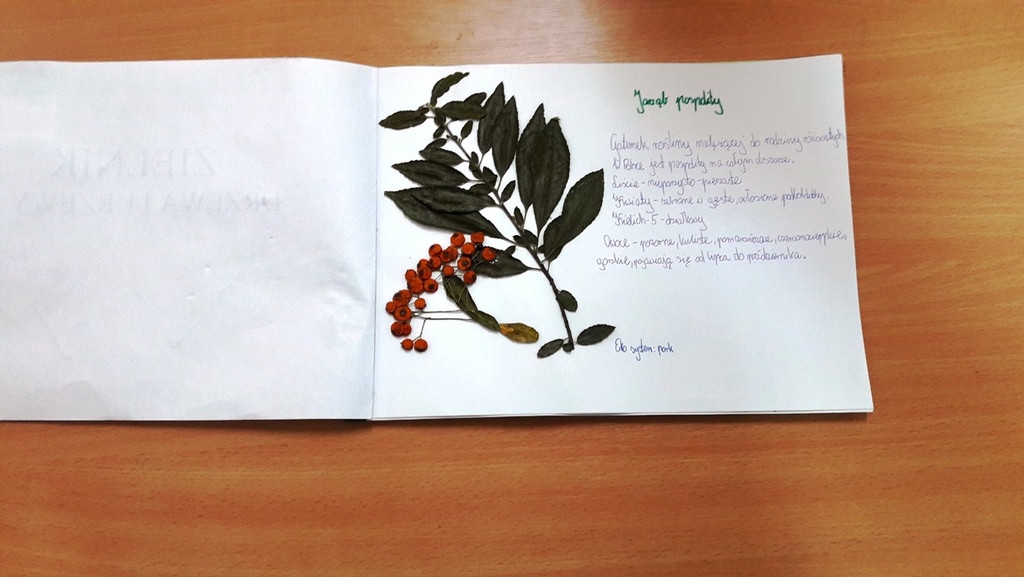 ZIELNIK
DRZEWA I KRZEWY
Jarząb pospolity
Gatunek rośliny należącej do rodziny różowatych
W Polsce jest pospolity na całym obszarze.
Liście - nieparzysto - pierzaste
Kwiaty - zebrane w gęste, owłosione podbaldachy.
Kielich - 5 - działkowy
Owoce - pozorne, kuliste, pomarańczowe, czerwone,
gorzkie, pojawiają się od lipca do października.
Eko system: park